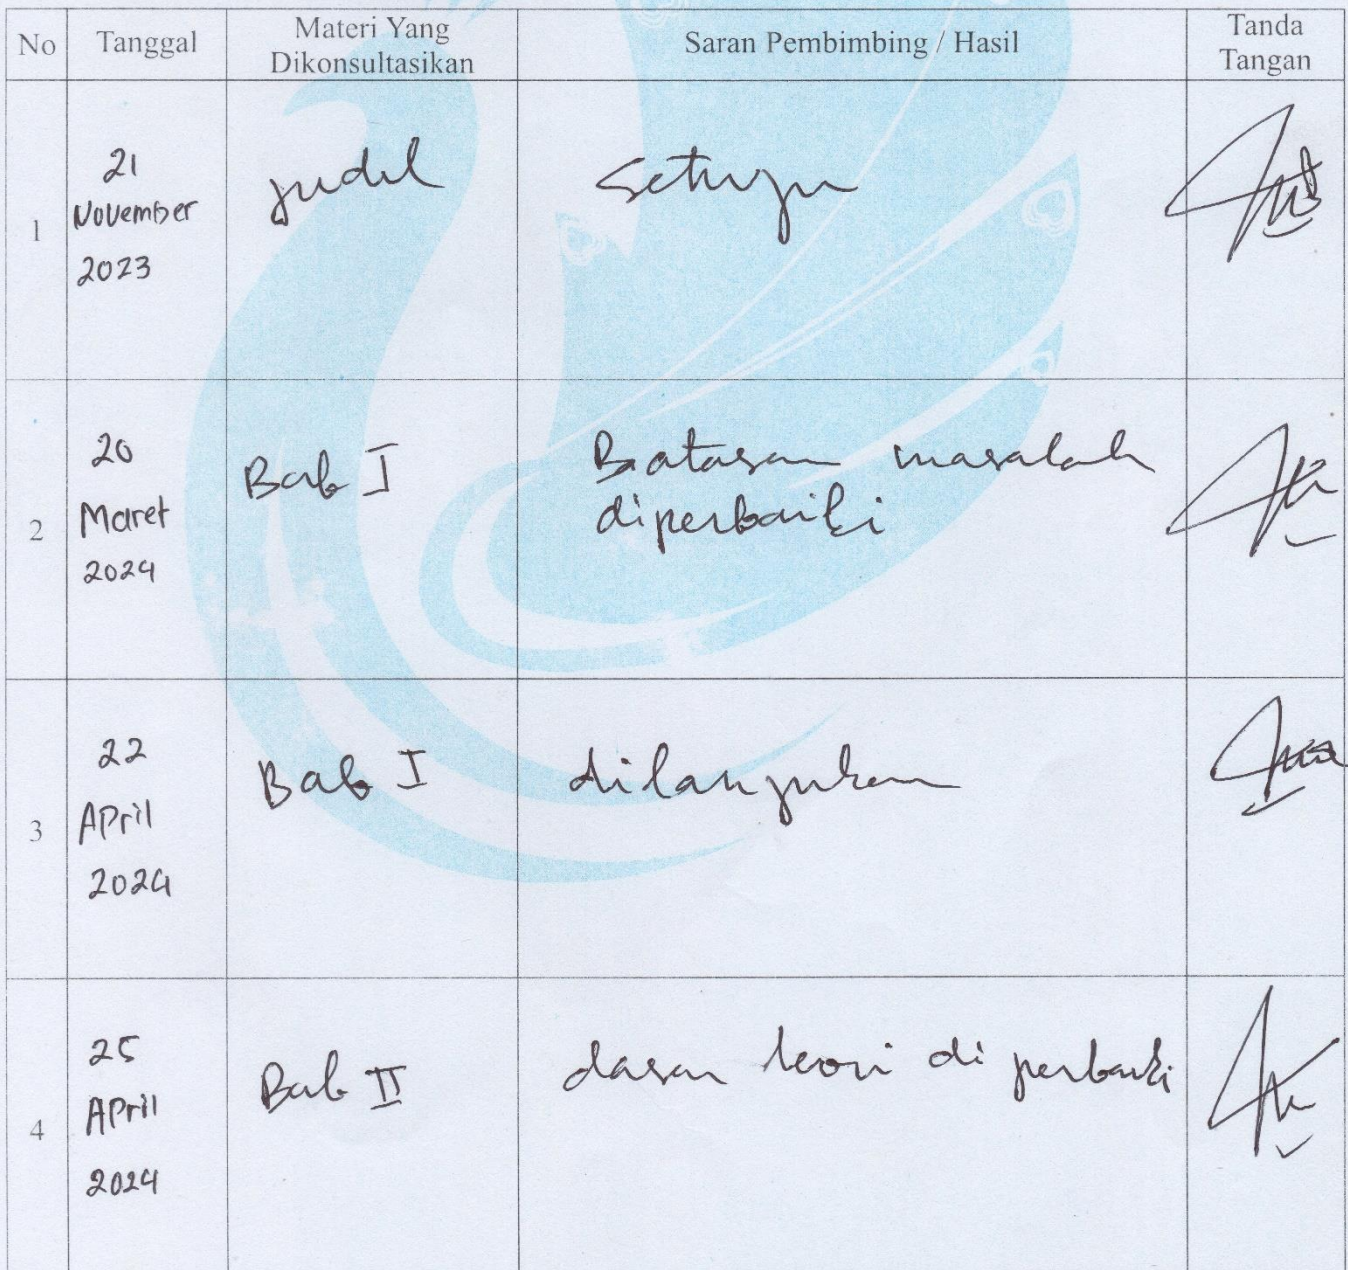 No Tanggal Materi Yang Dikonsultasikan Saran Pembimbing / Hasil Tanda Tangan
1
21
November
2023
judul
setuju
2
20
Maret
2024
Bab I
Batasan masalah
diperbaiki
3
22
April
2024
Bab I
dilanjutkan
4
25
April
2024
Bab II
dasar teori di perbaiki